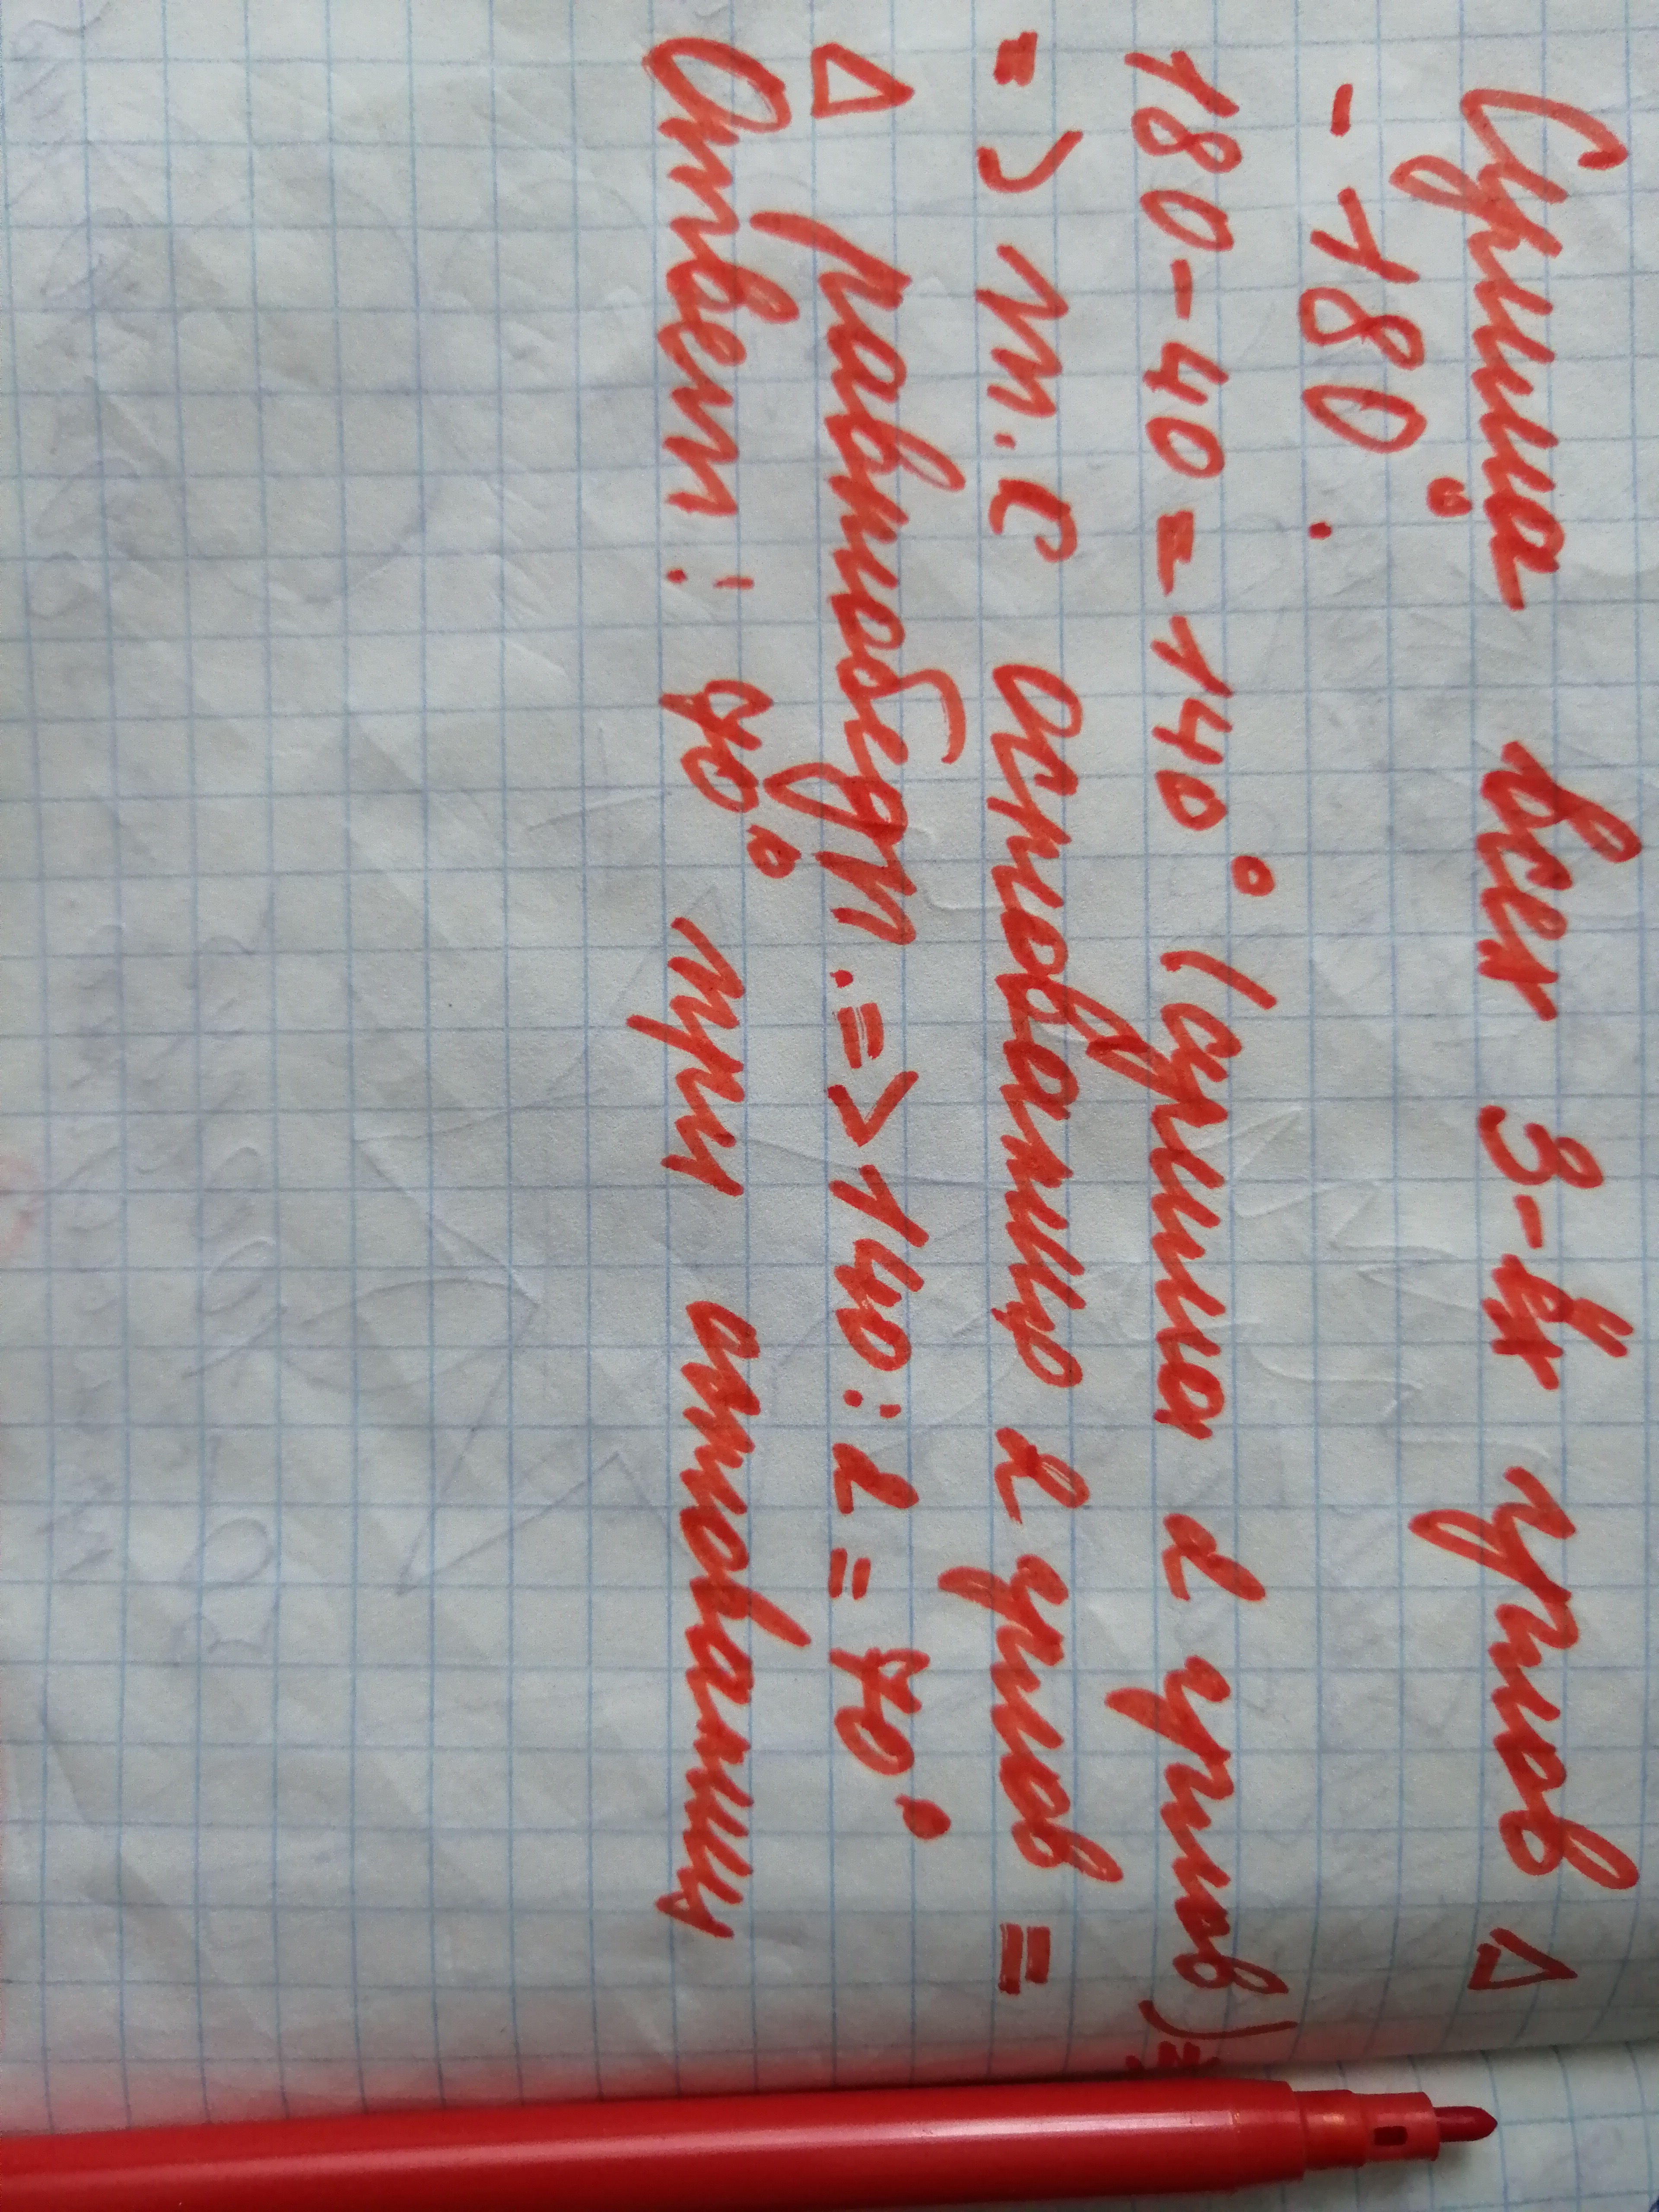 Сумма всех 3-ёх углов △
- 180°.
180-40=140° (сумма 2 углов) =
=> т.с основанию 2 углов =
△ равнобедр. => 140:2=70°
Ответ: 70° при основании